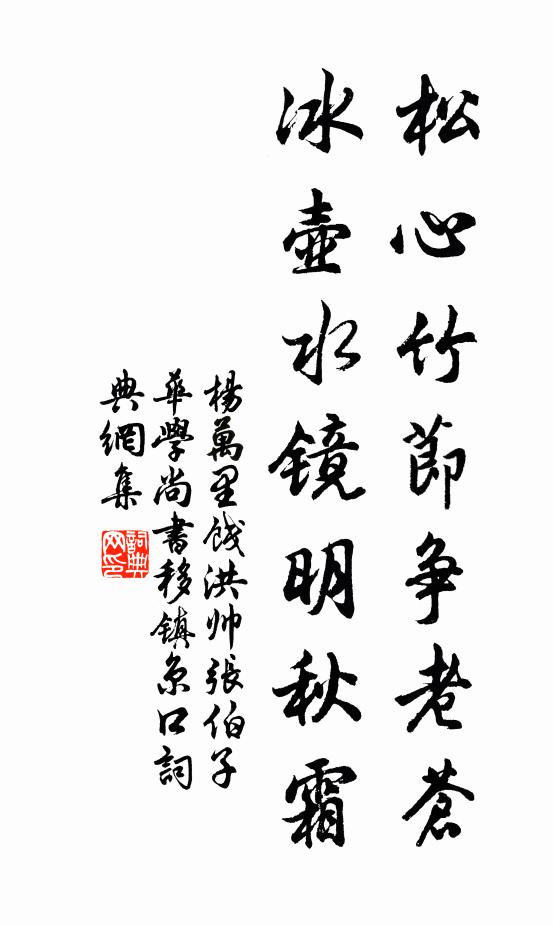 松心竹節争老蒼
冰壺水鏡明秋霜
楊萬里餞洪帅張伯子
華學尚書移鎮京口詞
典網集
詞典网印